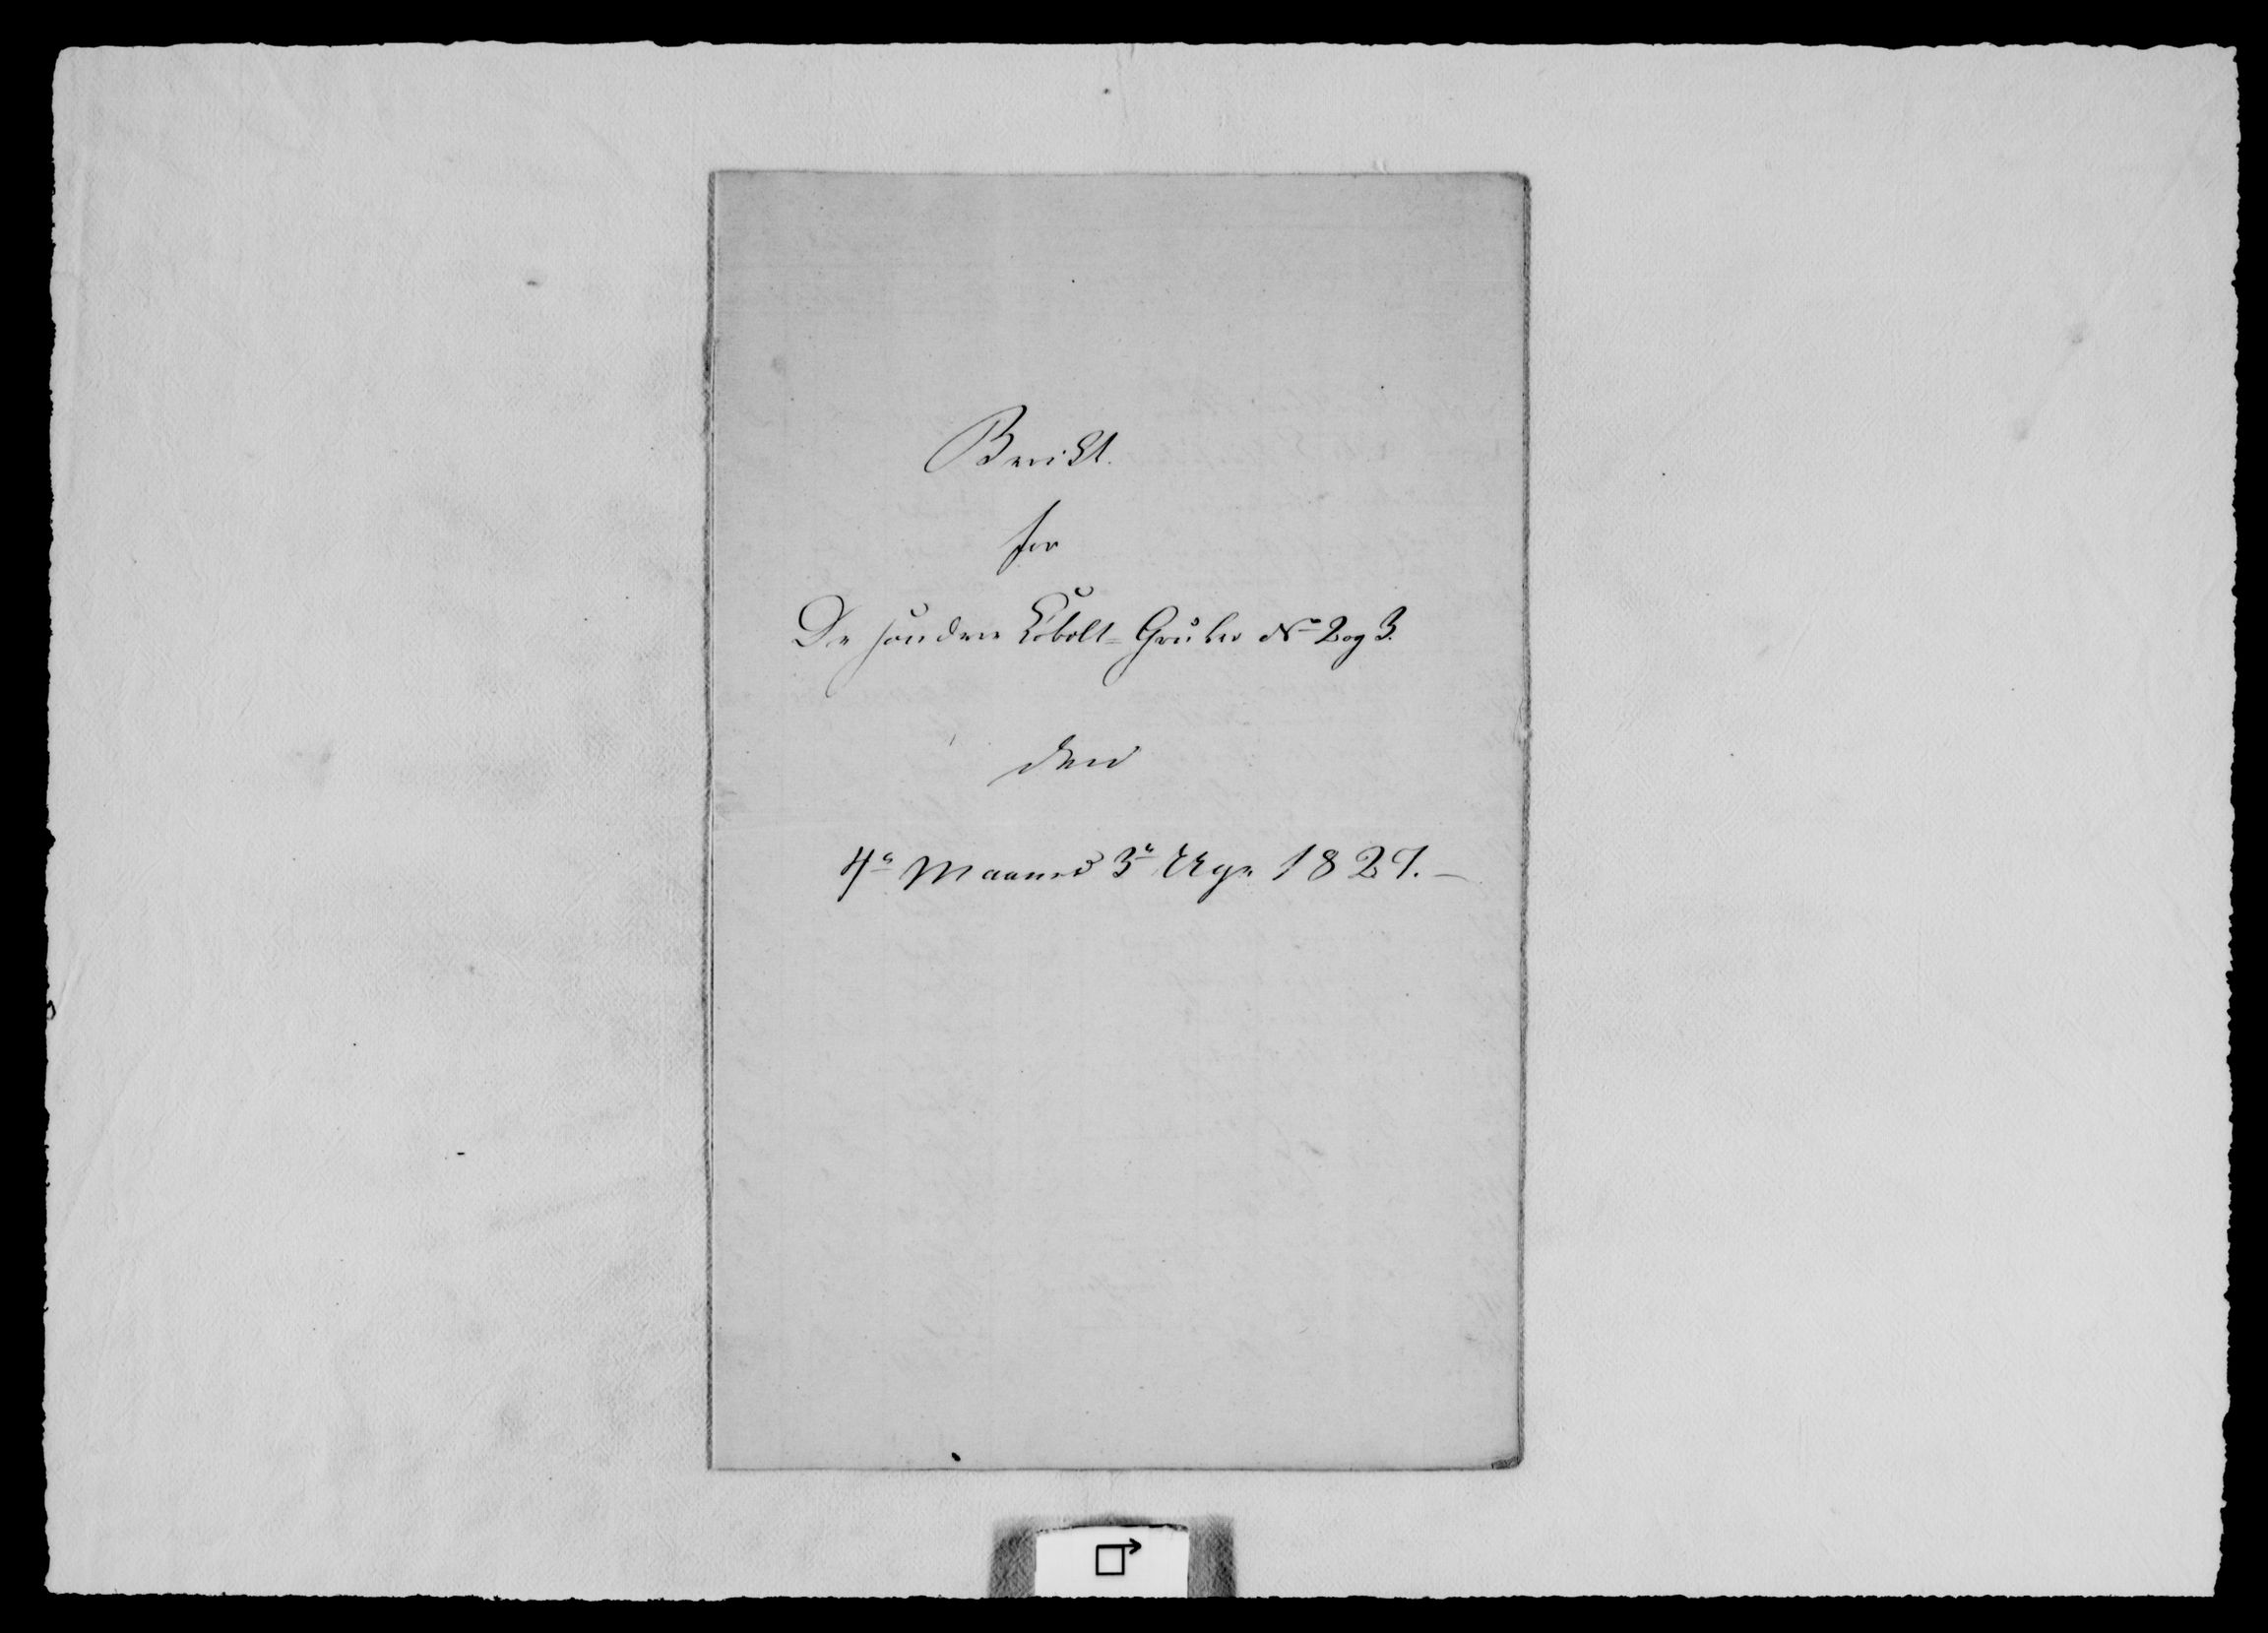 Bericht.
for
De søndre Kobolt-Gruber No 2 og 3.
den
4e Maaned 3e Uge 1827.-